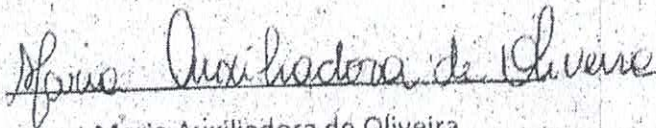 Maria Auxiliadora de Oliveira
Maria Auxiliadora de Oliveira